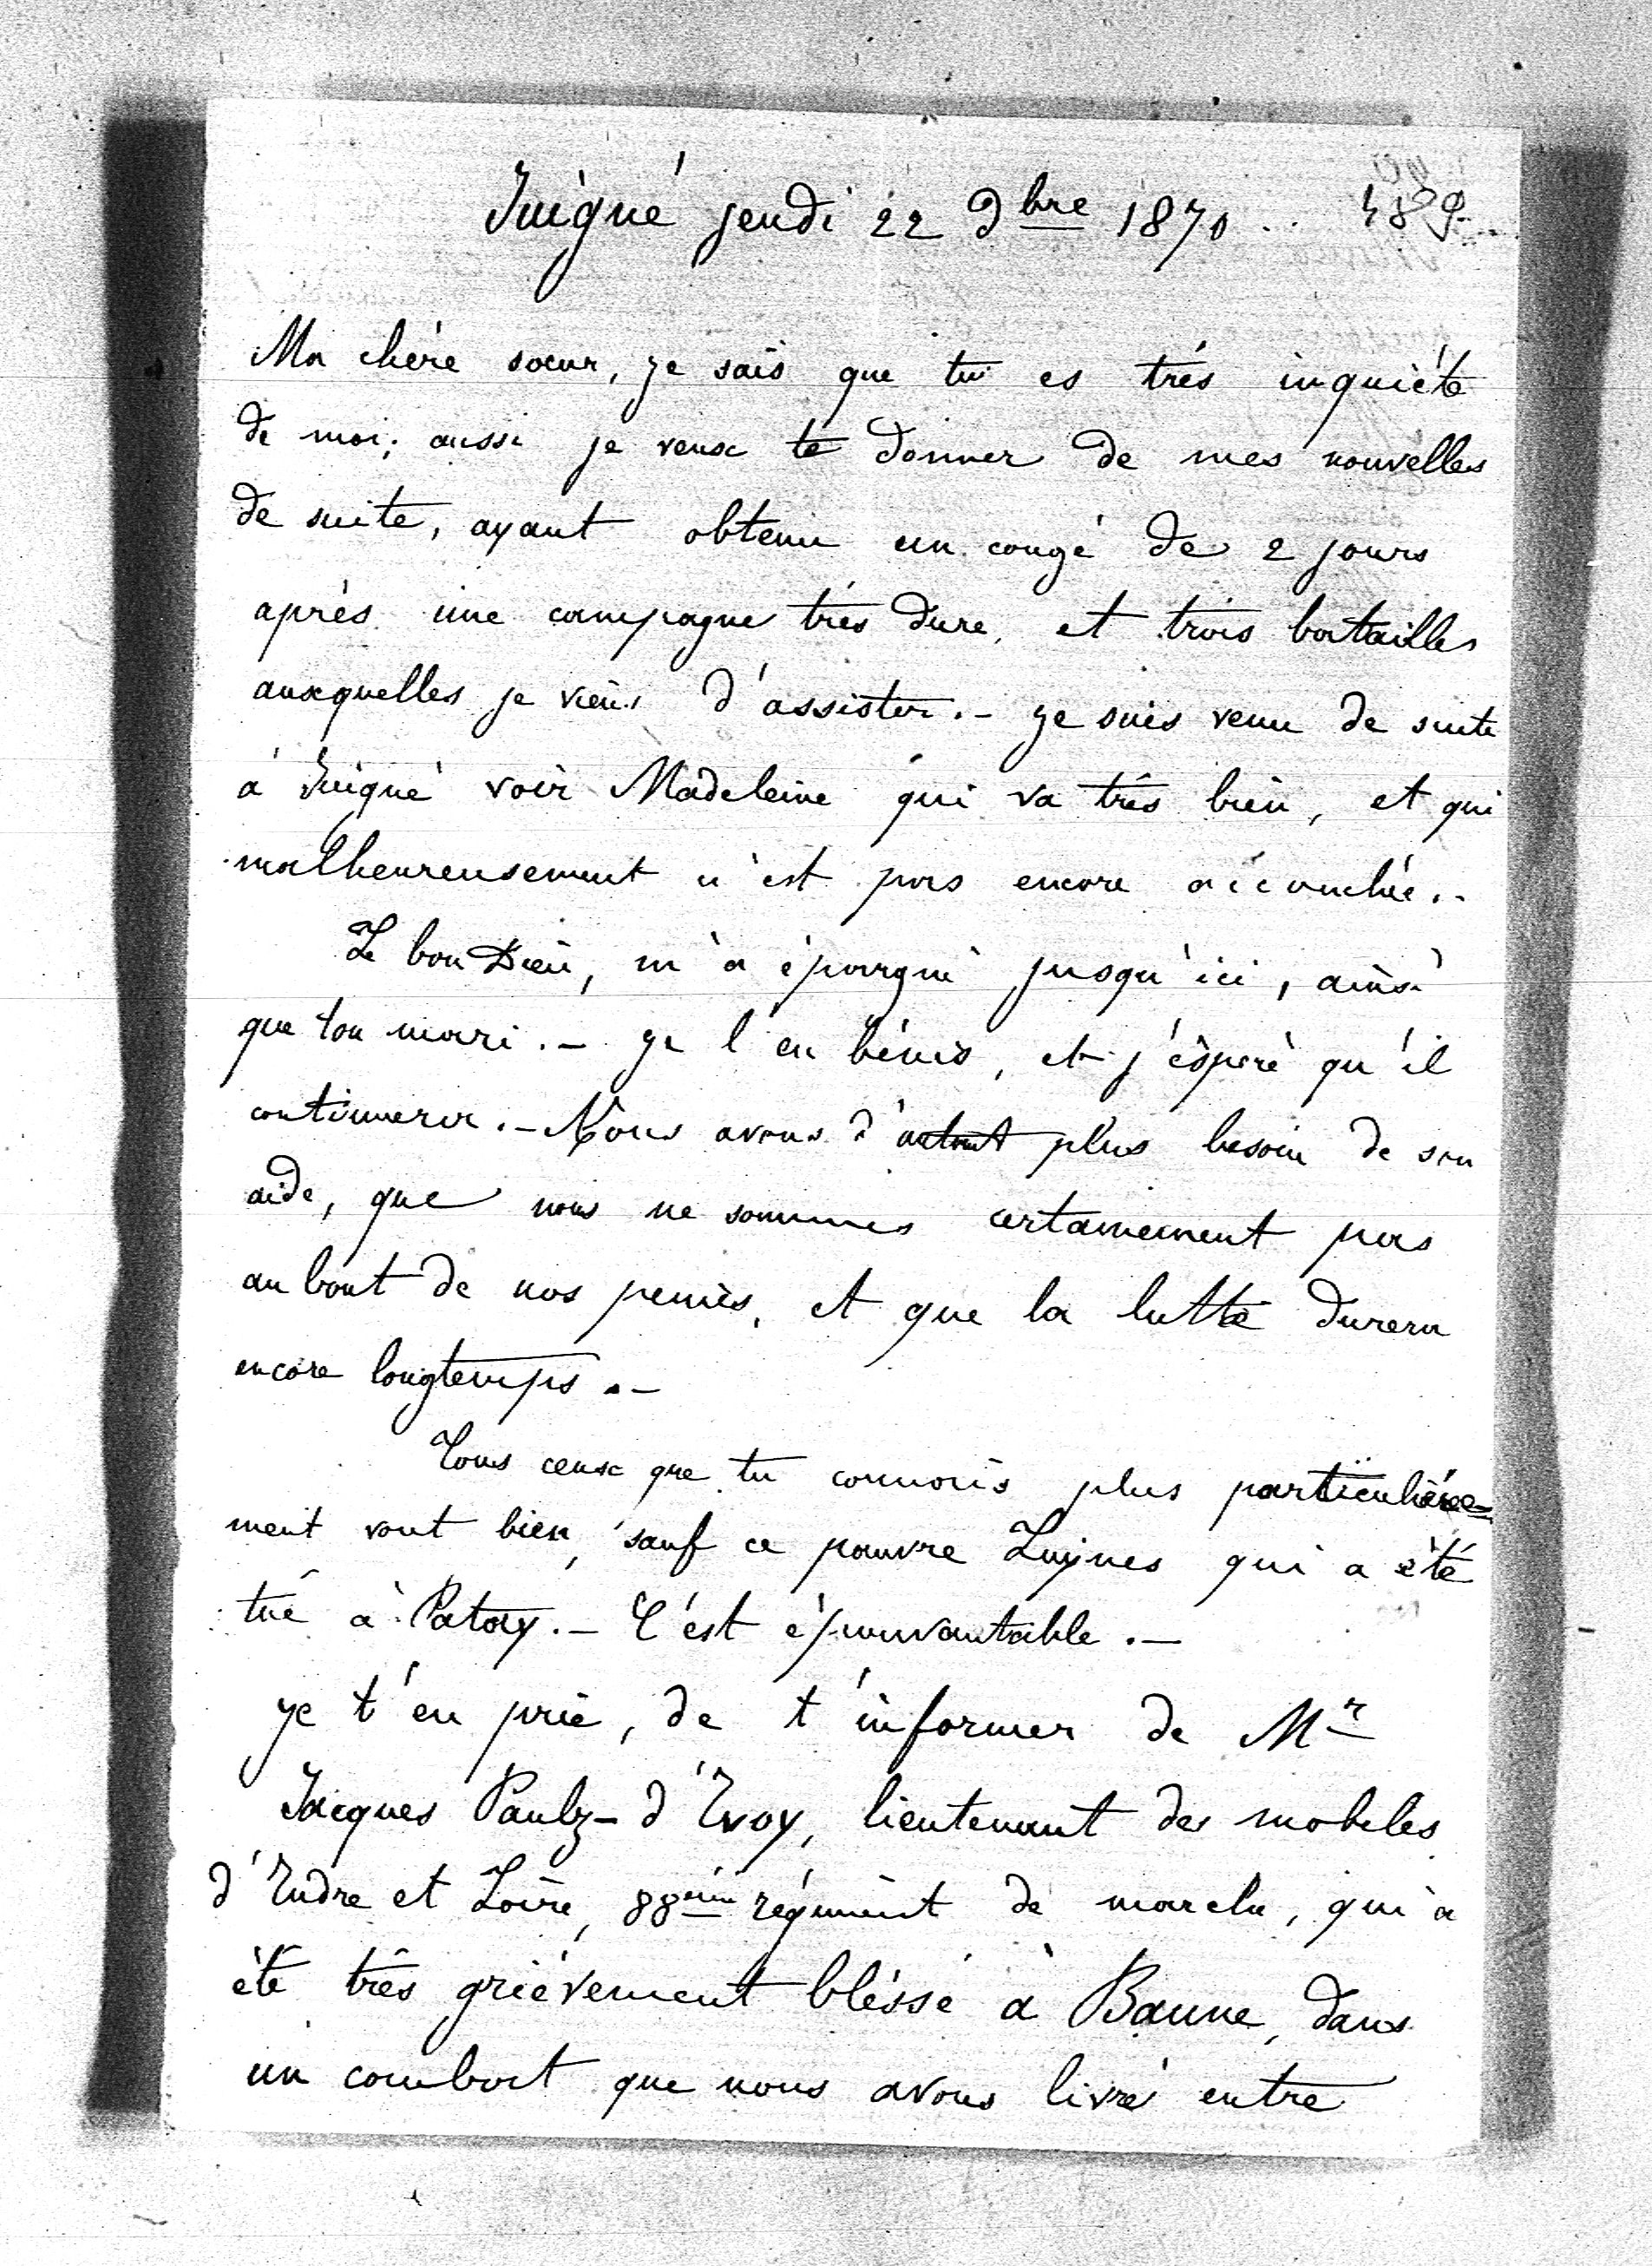 Juigné jeudi 22 9bre 1870.. 489
Ma chère soeur, je sais que tu es très inquiète
de moi; aussi je veux te donner de mes nouvelles
de suite, ayant obtenu un congé de 2 jours
après une campagne très dure, et trois batailles
auxquelles je viens d'assister.- je suis venu de suite
à Juigné voir Madeleine qui va très bien, et qui
malheureusement n'est pas encore accouchée..
Le bon Dieu, m'a épargné jusqu'ici, ainsi
que ton mari.- je l'en bénis, et j'éspère qu'il
continuera.- Nous avons d'autant plus besoin de son
aide, que nous ne sommes certainement pas
au bout de nos peines, et que la lutte durera
encore longtemps.-
Tous ceux que tu connais plus particulière-
ment vont bien, sauf ce pauvre Luynes qui a été
tué à Patay.- C'est épouvantable.-
je t'en prie, de t'informer de Mr
Jacques Paulz-d'Ivoy, lieutenant des mobiles
d'Indre et Loire, 88ème régiment de marche, qui a
été très grièvement bléssé à Baune, dans
un combat que nous avons livré entre